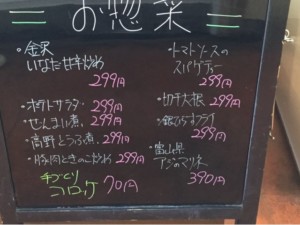 お惣菜
・金沢
いなだ甘辛炒め
299円
・ポテトサラダ・299円
・ぜんまい煮。299円
・高野とうふ煮。299円
・豚肉ときのこ炒め 299円
手づくり
コロッケ 70円
・トマトソースの
スパゲティー
299円
・切干大根。299円
299円
・富山県
アジのマリネ
390円